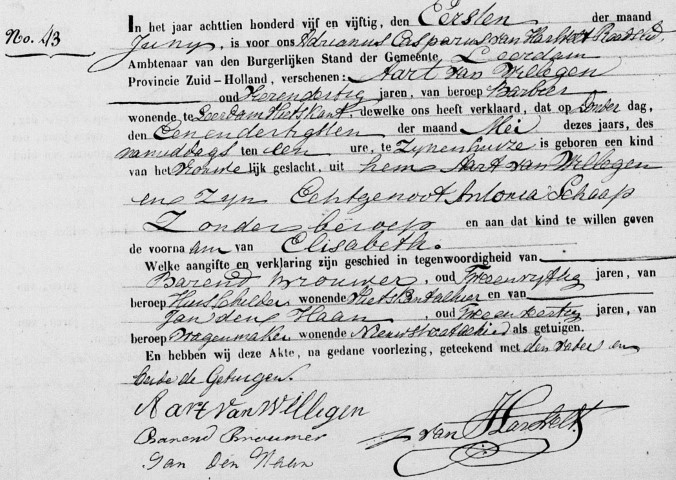 No. 43
In het jaar achttien honderd vijf en vijftig, den Eersten der maand
Juny, is voor ons Adrianus Casparus van Hasselt Raadslid,
Ambtenaar van den Burgerlijken Stand der Gemeente Leerdam
Provincie Zuid-Holland, verschenen: Aart van Willegen
oud Vierendertig jaren, van beroep Barbier
wonende te Leerdam Vlietskant, dewelke ons heeft verklaard, dat op Donder dag,
den Eenendertigsten der maand Mei dezes jaars, des
namiddags ten een ure, te Zijnenhuize is geboren een kind
van het Vrouwe lijk geslacht, uit hem Aart van Willegen
en Zijn Echtgenoot Antonia Schaap
Zonder beroep en aan dat kind te willen geven
de voorna am van Elisabeth.
Welke aangifte en verklaring zijn geschied in tegenwoordigheid van
Barend Brouwer, oud Tweeenvijftig jaren, van
beroep Huisschilder wonende Vlietskant alhier en van
Jan den Haan, oud Tweeenveertig jaren, van
beroep Wagenmaker wonende Nieuwstraat alhier als getuigen.
En hebben wij deze Akte, na gedane voorlezing, geteekend met den vader en
beide de Getuigen.
Aart Van Willegen
Barend Brouwer
van Hasselt
Jan Den Haan